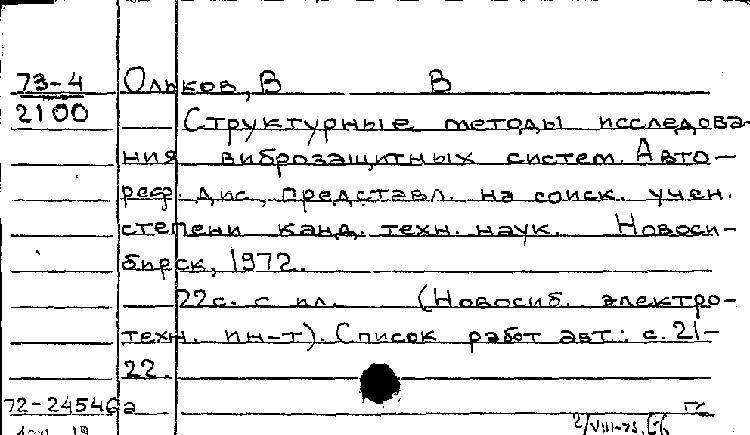 73-4 Ольков, В В
2100 Структурные методы исследова-
ния виброзащитных систем. Авто-
реф. дис., представл. на соиск. учен.
степени канд. техн. наук. Новоси-
бирск, 1972.
22с. с ил. (Новосиб. электро-
техн. ин-т). Список работ авт.: с. 21-
22.
72-24546а